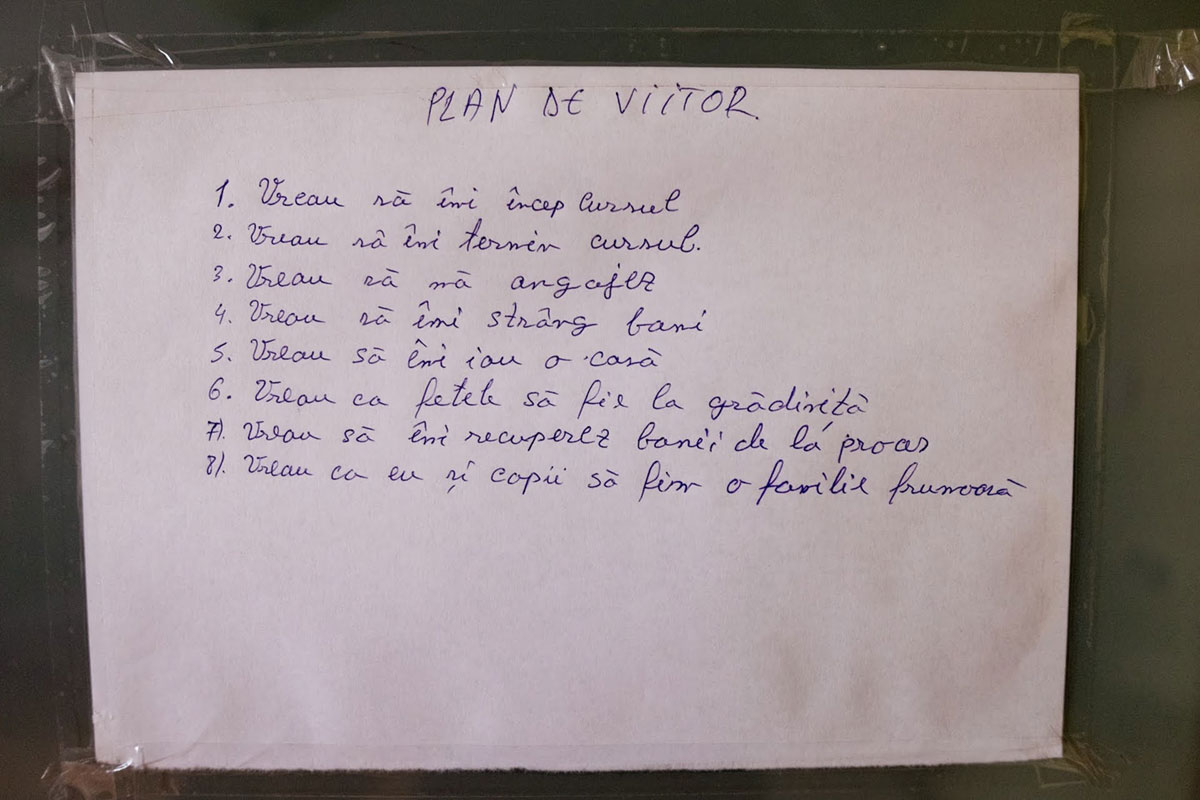 PLAN DE VIITOR.
1. Vreau să îmi încep cursul
2. Vreau să îmi termin cursul.
3. Vreau să mă angajez
4. Vreau să îmi strâng bani
5. Vreau să îmi iau o casă
6. Vreau ca fetele să fie la grădiniță
7). Vreau să îmi recuperez banii de la proces
8). Vreau ca eu și copii să fim o familie frumoasă